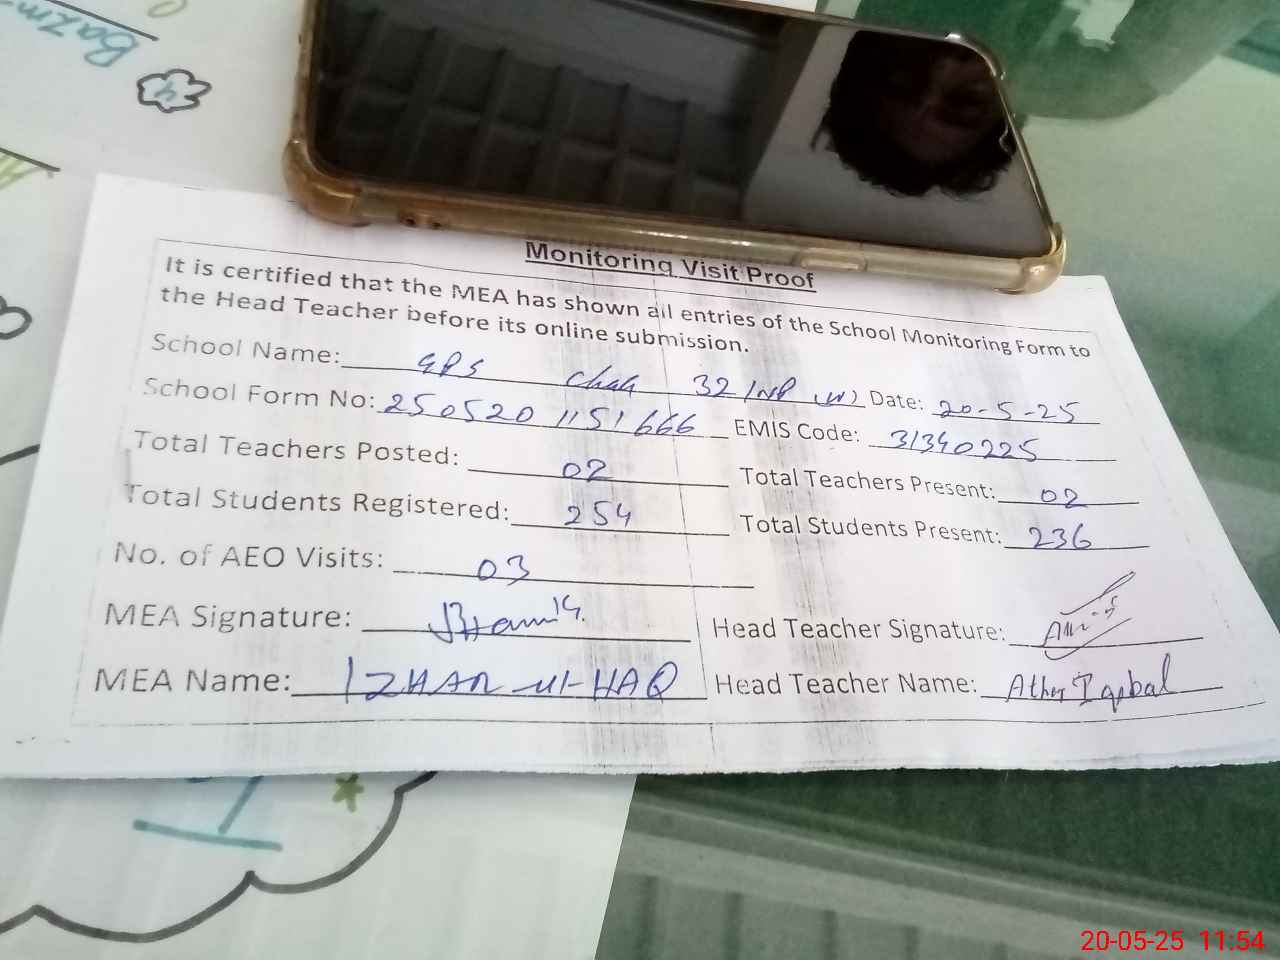 Bazm
4
Monitoring Visit Proof
It is certified that the MEA has shown all entries of the School Monitoring Form to
the Head Teacher before its online submission.
School Name: GPS Chak 32/NP (W) Date: 20-5-25
School Form No: 250520 1151666 EMIS Code: 31340225
Total Teachers Posted: 02 Total Teachers Present: 02
Total Students Registered: 254 Total Students Present: 236
No. of AEO Visits: 03
MEA Signature: Head Teacher Signature:
MEA Name: IZHAR-ul-HAQ Head Teacher Name: Ather Iqbal
20-05-25 11:54